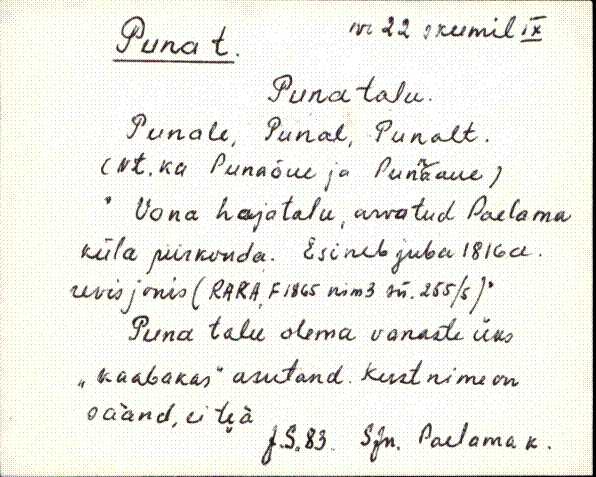 Puna t.
nr 22 skeemil IX
Puna talu.
Punale, Punal, Punalt.
(Vt. ka Punaõue ja Punaaue)
" Vana hajatalu, arvatud Paelama
küla piirkonda. Esineb juba 1816a.
revisjonis (RAKA, F 1865 nim3 sü. 255/5)"
Puna talu olema vanaste üks
„kaabakas" asutand. Kust nime on
säänd, ei tiä
J.S. 83. Sjn. Paelama k.